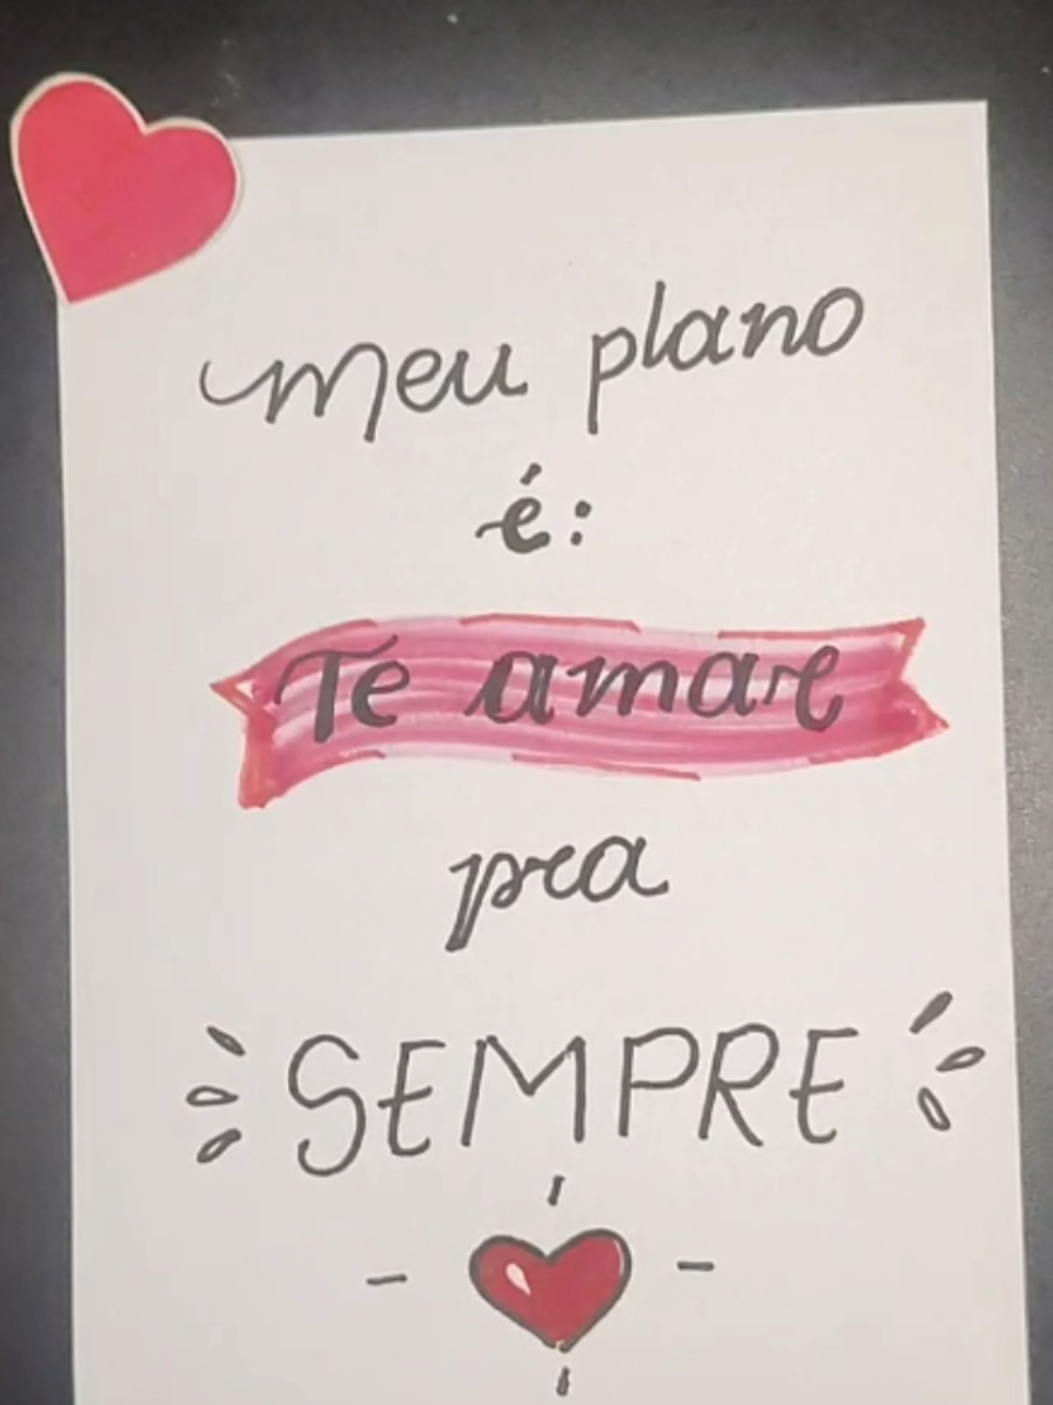 meu plano
é:
Te amar
pra
SEMPRE